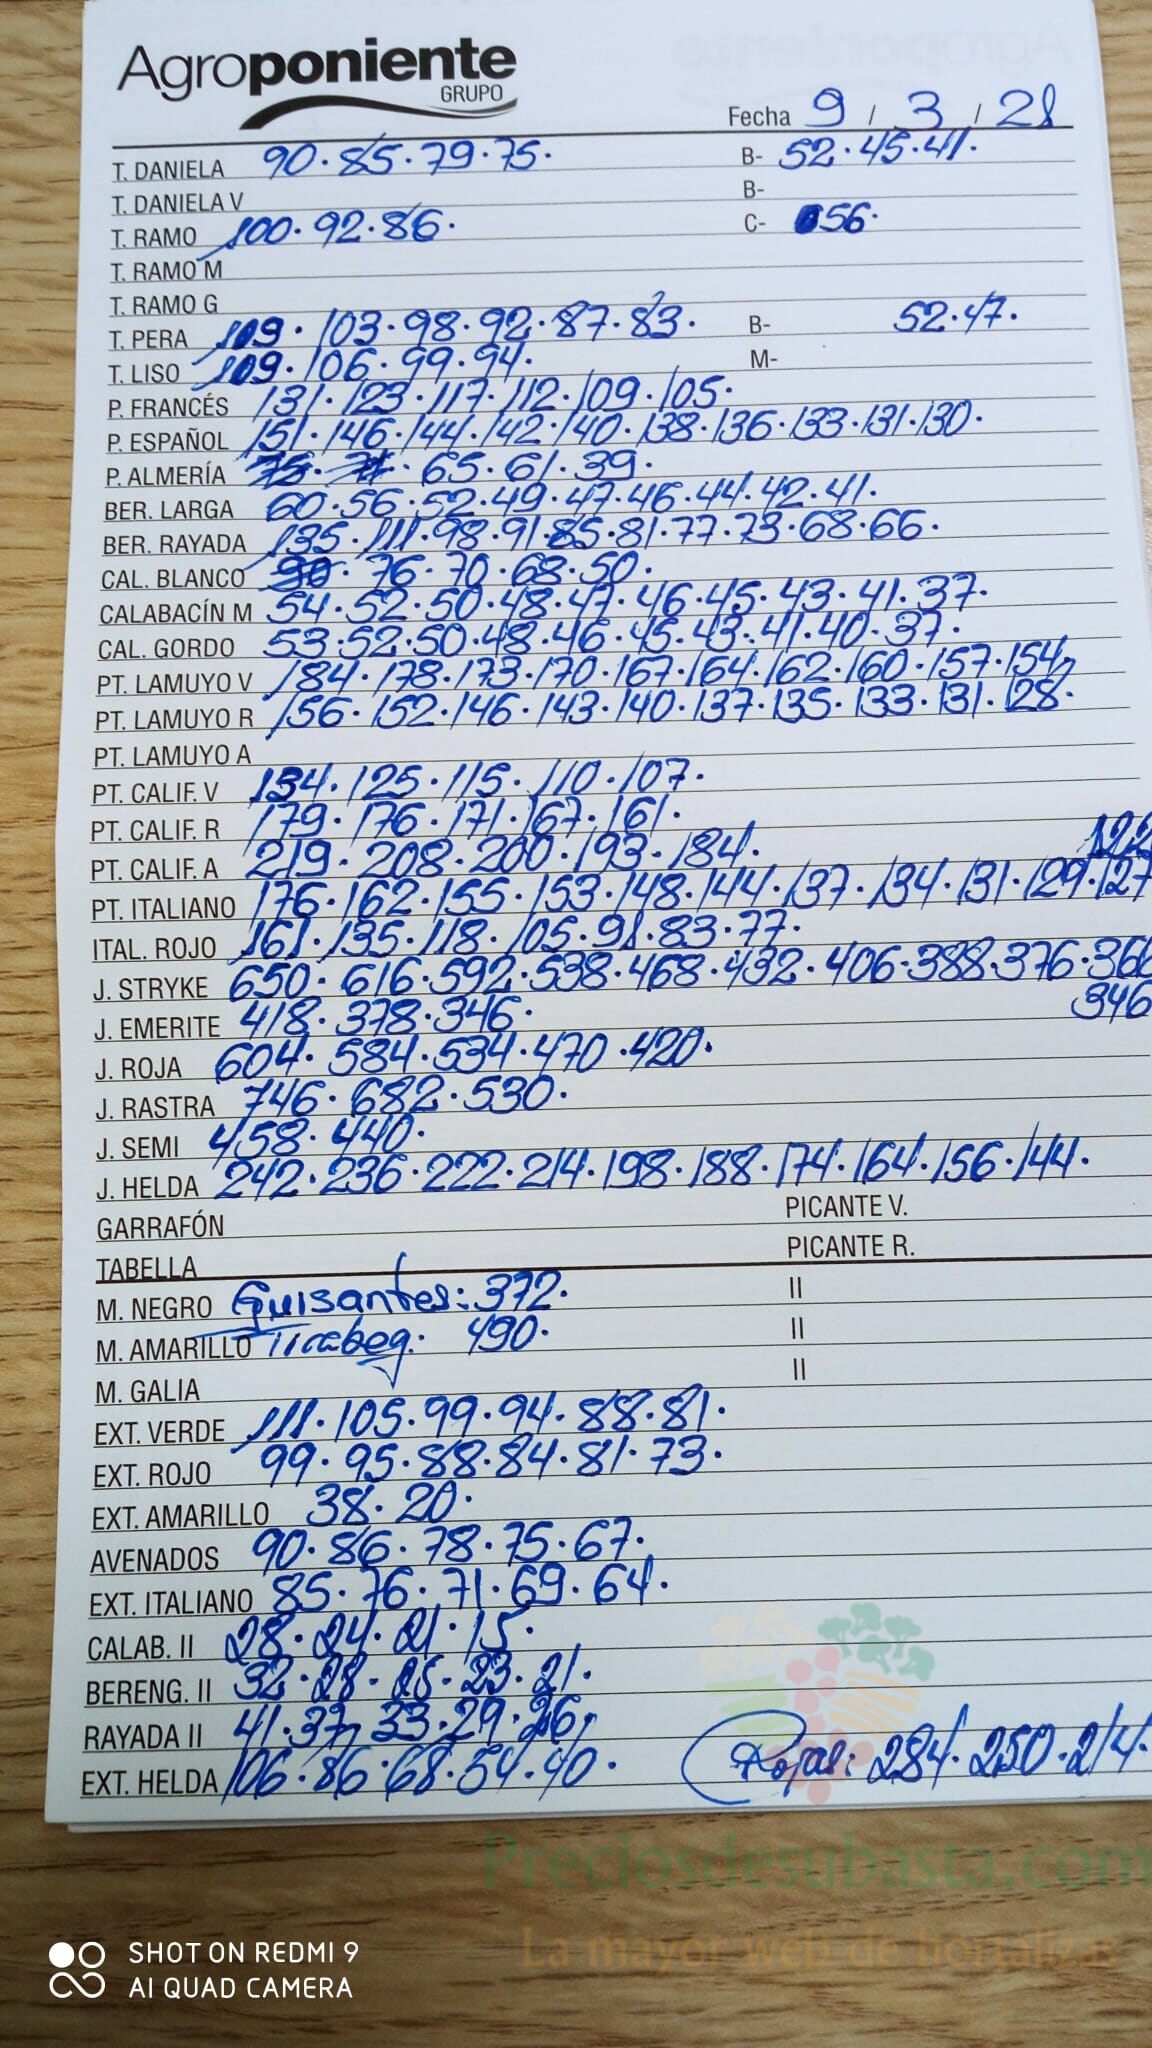 Agroponiente
GRUPO
Fecha 9 / 3 / 21
T. DANIELA 90.85.79.75. B- 52.45.41.
T. DANIELA V B-
T. RAMO 100.92.86. C- 56.
T. RAMO M
T. RAMO G
T. PERA 109.103.98.92.87.83. B- 52.47.
T. LISO 109.106.99.94. M-
P. FRANCÉS 131.123.117.112.109.105.
P. ESPAÑOL 151.146.144.142.140.138.136.133.131.130.
P. ALMERÍA 75. 71. 65.61.39.
BER. LARGA 60.56.52.49.47.46.44.42.41.
BER. RAYADA 135.111.98.91.85.81.77.73.68.66.
CAL. BLANCO 90. 76.70.68.50.
CALABACÍN M 54.52.50.48.47.46.45.43.41.37.
CAL. GORDO 53.52.50.48.46.45.43.41.40.37.
PT. LAMUYO V 184.178.173.170.167.164.162.160.157.154,
PT. LAMUYO R 156.152.146.143.140.137.135.133.131.128.
PT. LAMUYO A
PT. CALIF. V 134.125.115.110.107.
PT. CALIF. R 179.176.171.167.161.
PT. CALIF. A 219.208.200.193.184. 122
PT. ITALIANO 176.162.155.153.148.144.137.134.131.129.127
ITAL. ROJO 161.135.118.105.91.83.77.
J. STRYKE 650.616.592.538.468.432.406.388.376.366
J. EMERITE 418.378.346. 346
J. ROJA 604.584.534.470.420.
J. RASTRA 746.682.530.
J. SEMI 458.440.
J. HELDA 242.236.222.214.198.188.174.164.156.144.
GARRAFÓN PICANTE V.
TABELLA PICANTE R.
M. NEGRO Guisantes: 372. II
M. AMARILLO Tirabeq. 490. II
M. GALIA II
EXT. VERDE 111.105.99.94.88.81.
EXT. ROJO 99.95.88.84.81.73.
EXT. AMARILLO 38.20.
AVENADOS 90.86.78.75.67.
EXT. ITALIANO 85.76.71.69.64.
CALAB. II 28.24.21.15.
BERENG. II 32.28.25.23.21.
RAYADA II 41.37, 33.29.26,
EXT. HELDA 106.86.68.54.40. (Rojas: 284.250.214.
Preciosdesubasta.com
La mayor web de hortalizas
SHOT ON REDMI 9
AI QUAD CAMERA